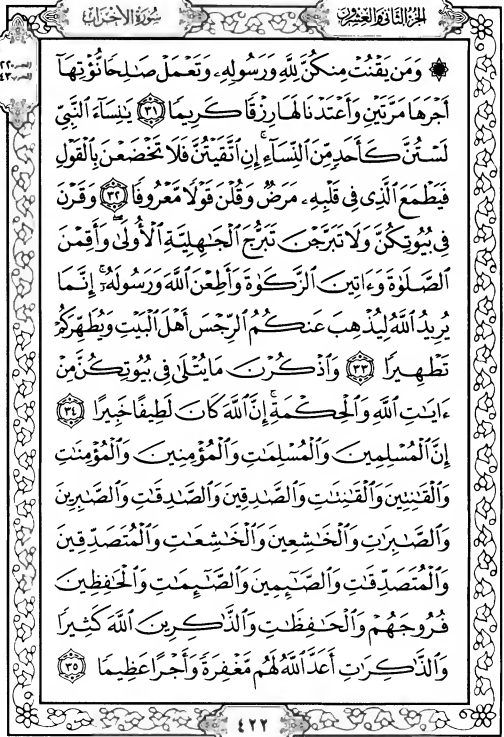 سُورَةُ الأَحْزَابِ
الجُزْءُ الثَّانِي وَالعِشْرُونَ
۞ وَمَن يَقْنُتْ مِنكُنَّ لِلَّهِ وَرَسُولِهِۦ وَتَعْمَلْ صَـٰلِحًا نُّؤْتِهَآ
أَجْرَهَا مَرَّتَيْنِ وَأَعْتَدْنَا لَهَا رِزْقًا كَرِيمًا ٣١ يَـٰنِسَآءَ ٱلنَّبِىِّ
لَسْتُنَّ كَأَحَدٍ مِّنَ ٱلنِّسَآءِ ۚ إِنِ ٱتَّقَيْتُنَّ فَلَا تَخْضَعْنَ بِٱلْقَوْلِ
فَيَطْمَعَ ٱلَّذِى فِى قَلْبِهِۦ مَرَضٌ وَقُلْنَ قَوْلًا مَّعْرُوفًا ٣٢ وَقَرْنَ
فِى بُيُوتِكُنَّ وَلَا تَبَرَّجْنَ تَبَرُّجَ ٱلْجَـٰهِلِيَّةِ ٱلْأُولَىٰ ۖ وَأَقِمْنَ
ٱلصَّلَوٰةَ وَءَاتِينَ ٱلزَّكَوٰةَ وَأَطِعْنَ ٱللَّهَ وَرَسُولَهُۥٓ ۚ إِنَّمَا
يُرِيدُ ٱللَّهُ لِيُذْهِبَ عَنكُمُ ٱلرِّجْسَ أَهْلَ ٱلْبَيْتِ وَيُطَهِّرَكُمْ
تَطْهِيرًا ٣٣ وَٱذْكُرْنَ مَا يُتْلَىٰ فِى بُيُوتِكُنَّ مِنْ
ءَايَـٰتِ ٱللَّهِ وَٱلْحِكْمَةِ ۚ إِنَّ ٱللَّهَ كَانَ لَطِيفًا خَبِيرًا ٣٤
إِنَّ ٱلْمُسْلِمِينَ وَٱلْمُسْلِمَـٰتِ وَٱلْمُؤْمِنِينَ وَٱلْمُؤْمِنَـٰتِ
وَٱلْقَـٰنِتِينَ وَٱلْقَـٰنِتَـٰتِ وَٱلصَّـٰدِقِينَ وَٱلصَّـٰدِقَـٰتِ وَٱلصَّـٰبِرِينَ
وَٱلصَّـٰبِرَٰتِ وَٱلْخَـٰشِعِينَ وَٱلْخَـٰشِعَـٰتِ وَٱلْمُتَصَدِّقِينَ
وَٱلْمُتَصَدِّقَـٰتِ وَٱلصَّـٰٓئِمِينَ وَٱلصَّـٰٓئِمَـٰتِ وَٱلْحَـٰفِظِينَ
فُرُوجَهُمْ وَٱلْحَـٰفِظَـٰتِ وَٱلذَّٰكِرِينَ ٱللَّهَ كَثِيرًا
وَٱلذَّٰكِرَٰتِ أَعَدَّ ٱللَّهُ لَهُم مَّغْفِرَةً وَأَجْرًا عَظِيمًا ٣٥
٤٢٢